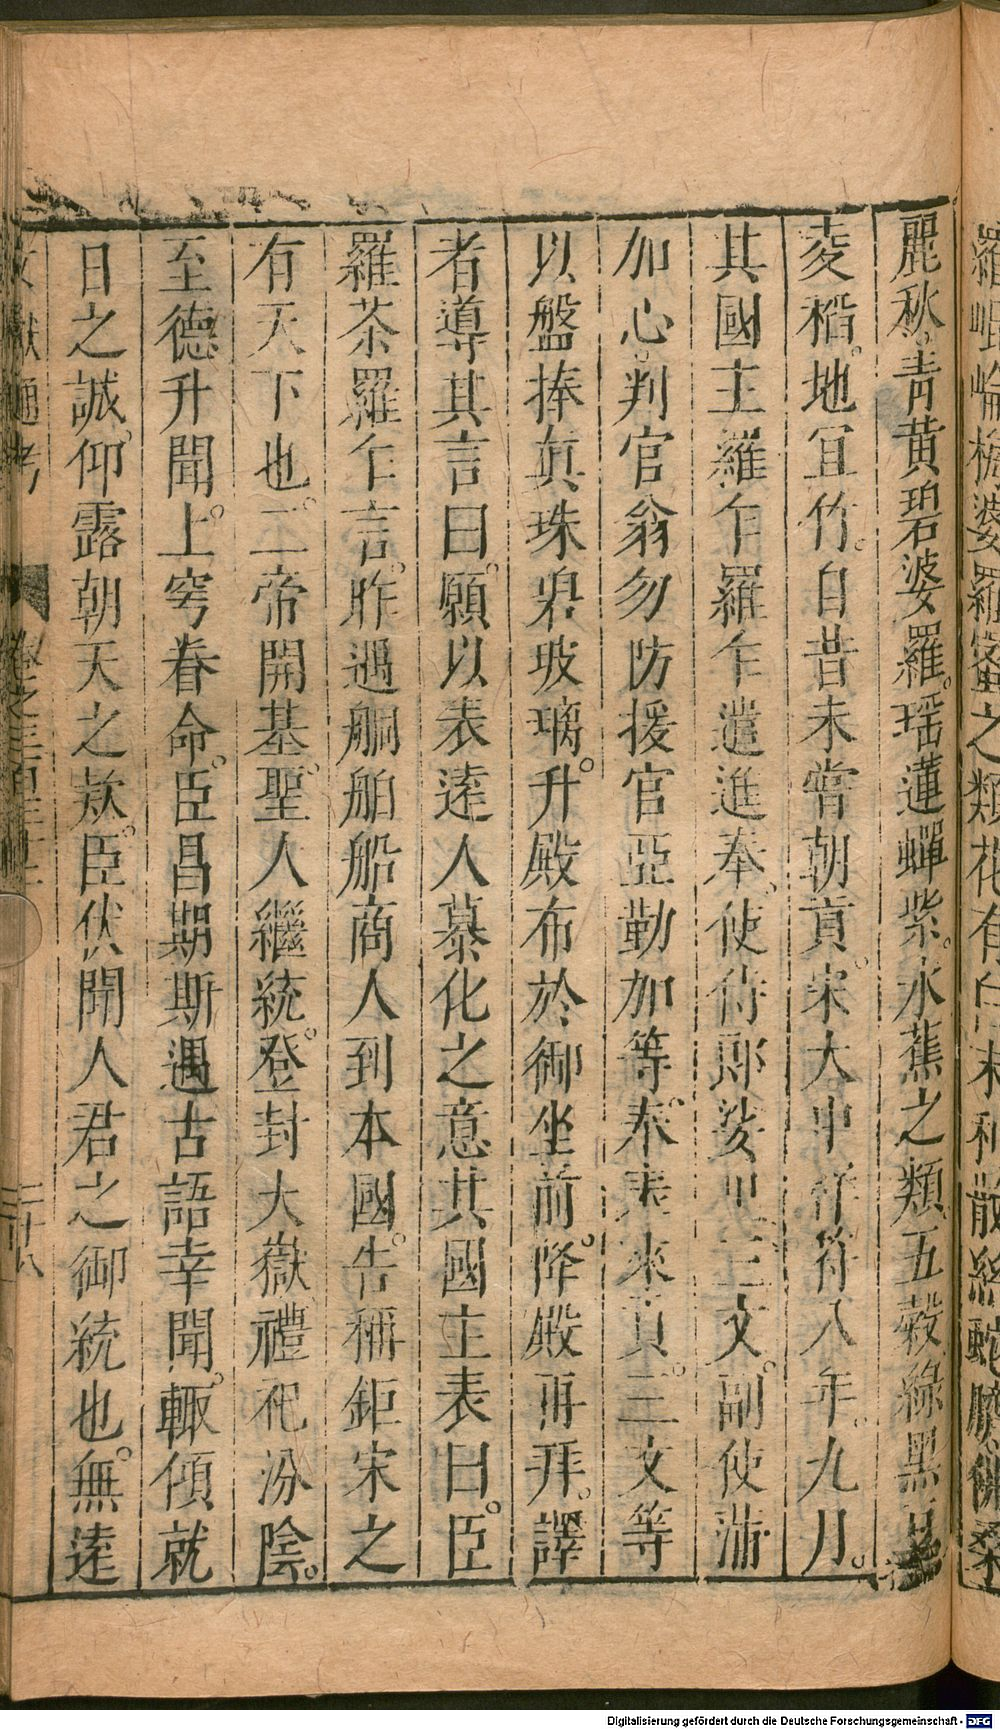 羅崐崙梅婆羅蜜之類花有白末利散絲蛇臍佛桑
麗秋。青黄碧婆羅。瑶蓮蟬紫。水蕉之類。五穀綠黑豆
麥稻。地宜竹。自昔未嘗朝貢。宋大中祥符八年。九月。
其國主羅乍羅乍遣進奉。使侍郎娑里三文。副使蒲
加心。判官翁勿防援官亞勒加等。奉表來貢。三文等
以盤捧眞珠碧玻璃。升殿布於御坐前。降殿再拜。譯
者導其言曰。願以表遠人慕化之意其國主表曰。臣
羅茶羅乍言。昨遇舸舶船商人到本國。告稱鉅宋之
有天下也。二帝開基。聖人繼統。登封大嶽禮祀汾陰。
至德升聞。上穹眷命。臣昌期斯遇古語幸聞。輙傾就
日之誠。仰露朝天之欵。臣伏聞人君之御統也。無遠
文獻通考 卷之三百三十二 二十八
Digitalisierung gefördert durch die Deutsche Forschungsgemeinschaft - DFG